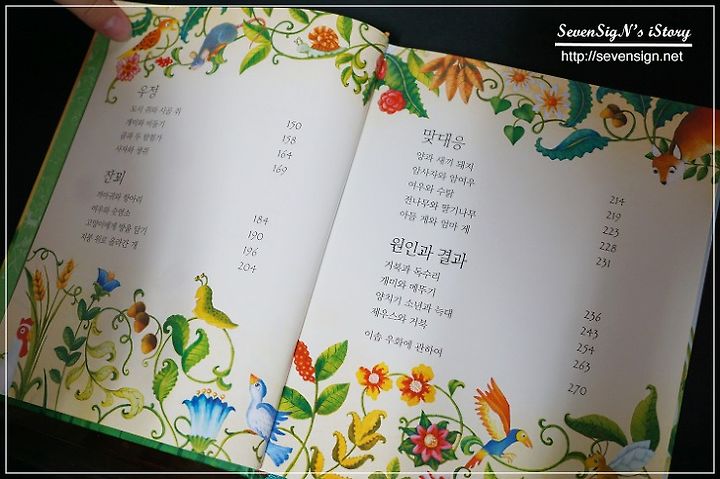 SevenSigN's iStory
http://sevensign.net
우정
도시 쥐와 시골 쥐
개미와 비둘기 150
곰과 두 탐험가 158
사자와 생쥐 164
169
잔꾀
까마귀와 항아리
여우와 숫염소 184
고양이에게 방울 달기 190
지붕 위로 올라간 개 196
204
맞대응
양과 새끼 돼지
암사자와 암여우 214
여우와 수탉 219
전나무와 딸기나무 223
아들 게와 엄마 게 228
231
원인과 결과
거북과 독수리
개미와 메뚜기 236
양치기 소년과 늑대 243
제우스와 거북 254
263
이솝 우화에 관하여
270